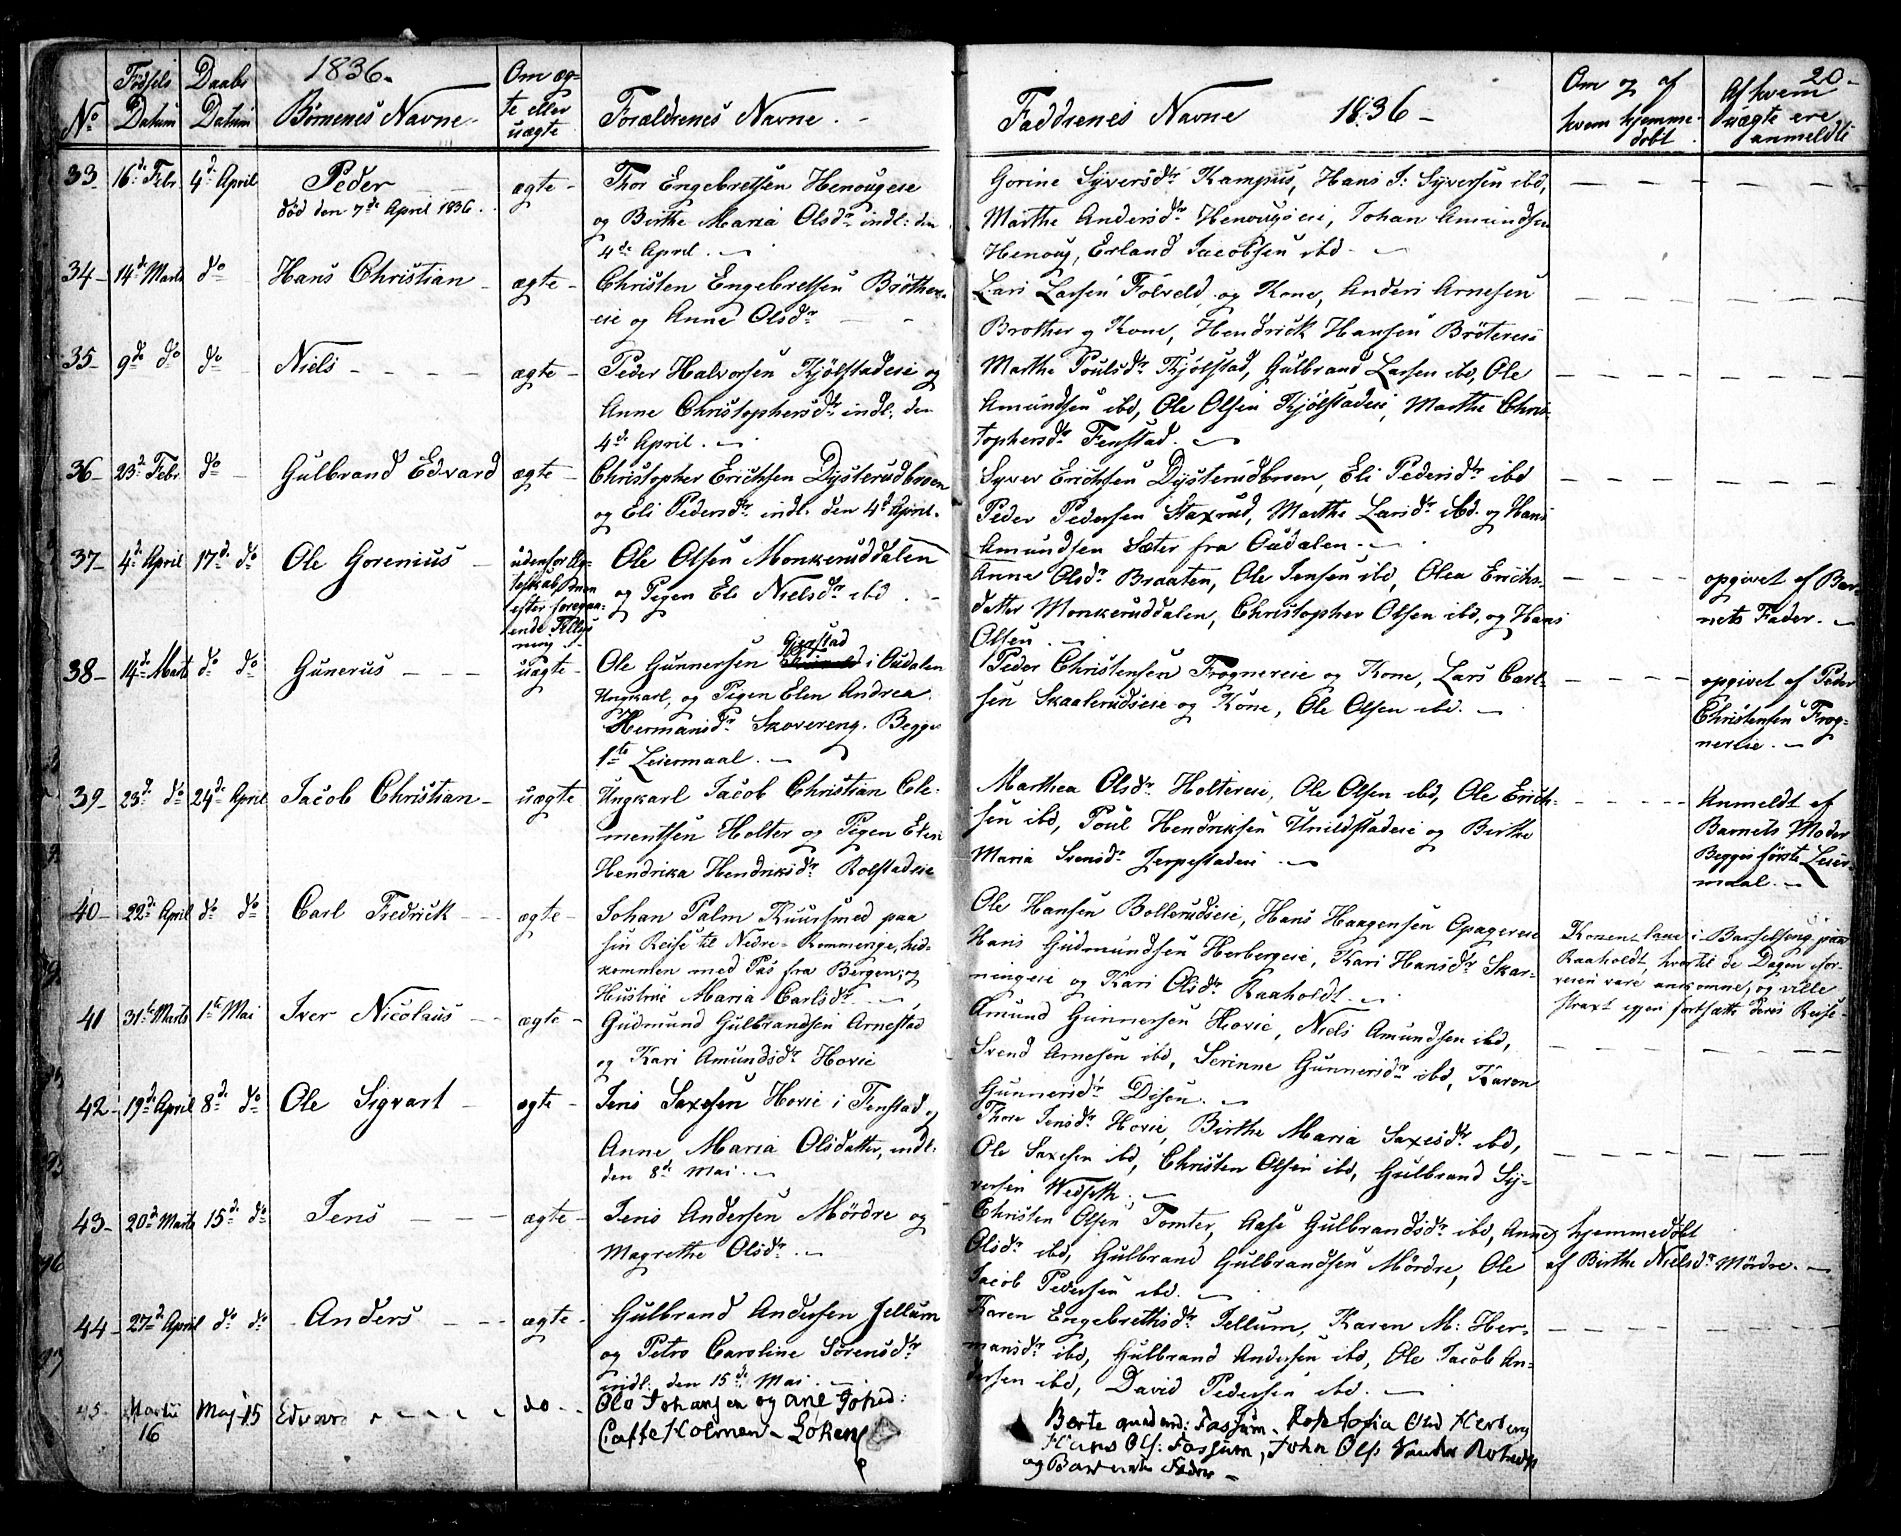 1836.
20.
No
Fødsels Datum
Daabs Datum
Børnenes Navne.
Om ægte eller uægte
Forældrenes Navne.
Faddrenes Navne 1836
Om og af hvem hjemmedøbt
Af hvem uægte ere anmeldte
33 16de Febr 4de April Peder ægte
død den 7de April 1836.
Thor Engebretsen Henougeie
og Birthe Maria Olsdr indl: den
4de April.
Gorine Syversdr Kampus, Hans J: Syversen ibd,
Marthe Andersdr Henougeie, Johan Amundsen
Henoug, Erland Jacobsen ibd
34 14de Marts do Hans Christian ægte
Christen Engebretsen Brøther-
eie og Anne Olsdr
Lars Larsen Folveld og Kone, Anders Arnesen
Brøther og Kone, Hendrick Hansen Brøtereie
35 9de do do Niels ægte
Peder Halvorsen Kjølstadeie og
Anne Christophersdr indl: den
4de April.
Marthe Poulsdr Kjølstad, Gulbrand Larsen ibd, Ole
Amundsen ibd, Ole Olsen Kjølstadeie, Marthe Chris-
tophersdr Fenstad.
36 23de Febr do Gulbrand Edvard ægte
Christopher Erichsen Dysterudbroen
og Eli Pedersdr indl. den 4de April.
Syver Erichsen Dysterudbroen, Eli Pedersdr ibd
Peder Pedersen Staxrud, Marthe Larsdr ibd. og Hans
Amundsen Sæter fra Oudalen.
37 4de April 17de do Ole Gorenius
udenfor Æg-
teskab, Men
efter foregaa-
ende Trolov-
ning
Ole Olsen Monkeruddalen
og Pigen Eli Nielsdr ibd.
Anne Olsdr Braaten, Ole Jensen ibd, Olea Erichs-
datter Monkeruddalen, Christopher Olsen ibd, og Hans
Olsen.
opgivet af Bar-
nets Fader.
38 14de Marts do do Gunerus uægte
Ole Gunnersen Gjerstad i Oudalen
Ungkarl, og Pigen Elen Andrea
Hermansdr Skovereng. Begges
1ste Leiermaal.
Peder Christensen Frognereie og Kone, Lars Carl-
sen Skaalerudseie og Kone, Ole Olsen ibd.
opgivet af Peder
Christensen Frog-
nereie.
39 23de do 24de April Jacob Christian uægte
Ungkarl Jacob Christian Cle-
mentsen Holter og Pigen Elen
Hendrika Hendriksdr Rolfstadeie
Marthea Olsdr Holtereie, Ole Olsen ibd, Ole Erich-
sen ibd, Poul Hendriksen Unildstadeie og Birthe
Maria Svensdr Jerpestadeie
Anmeldt af
Barnets Moder
Begges første Leier-
maal.
40 22de April do do Carl Fredrick ægte
Johan Palm Kuursmed paa
sin Reise til Nedre-Rommerige, hid-
kommen med Pas fra Bergen; og
Hustrue Maria Carlsdr
Ole Hansen Bollerudseie, Hans Haagensen Opagereie
Hans Gudmundsen Herbergeie, Kari Hansdr Skar-
ningeie og Kari Olsdr Raaholdt.
Konen laae i Barselseng paa
Raaholdt, hvortil de Dagen for-
veien vare ankomne, og ville
strax igjen fortsætte deres Reise
41 31te Marts 1ste Mai Iver Nicolaus ægte
Gudmund Gulbrandsen Arnestad
og Kari Amundsdr Hovie
Amund Gunnersen Hovie, Niels Amundsen ibd,
Svend Arnesen ibd, Serinne Gunnersdr ibd, Karen
Gunnersdr Disen.
42 19de April 8de do Ole Sigvart ægte
Jens Saxesen Hovie i Fenstad og
Anne Maria Olsdatter, indl:
den 8de Mai.
Thore Jensdr Hovie, Birthe Maria Saxesdr ibd,
Ole Saxesen ibd, Christen Olsen ibd, Gulbrand Sy-
versen Wedseth.
43 20de Marts 15de do Jens ægte
Jens Andersen Mørdre og
Magrethe Olsdr.
Christen Olsen Tomter, Aase Gulbrandsdr ibd, Anne
Olsdr ibd, Gulbrand Gulbrandsen Mørdre, Ole
Jacob Pedersen ibd.
hjemmedøbt
af Birthe Nielsdr Mørdre.
44 27de April do do Anders ægte
Gulbrand Andersen Jellum
og Petro Caroline Sørensdr
indl: den 15de Mai.
Karen Engebrethsdr Jellum, Karen M: Her-
mansdr ibd, Gulbrand Andersen ibd, Ole Jacob An-
dersen ibd, David Pedersen ibd.
45. Martii 16 Maj 15 Edvard do
Ole Johansen og Ane Johsd:
Caffeholmen Løken
Berte Fassum. Sofia Herberg
Hans Ols: Fassum, John Ols:
og Barnets Fader